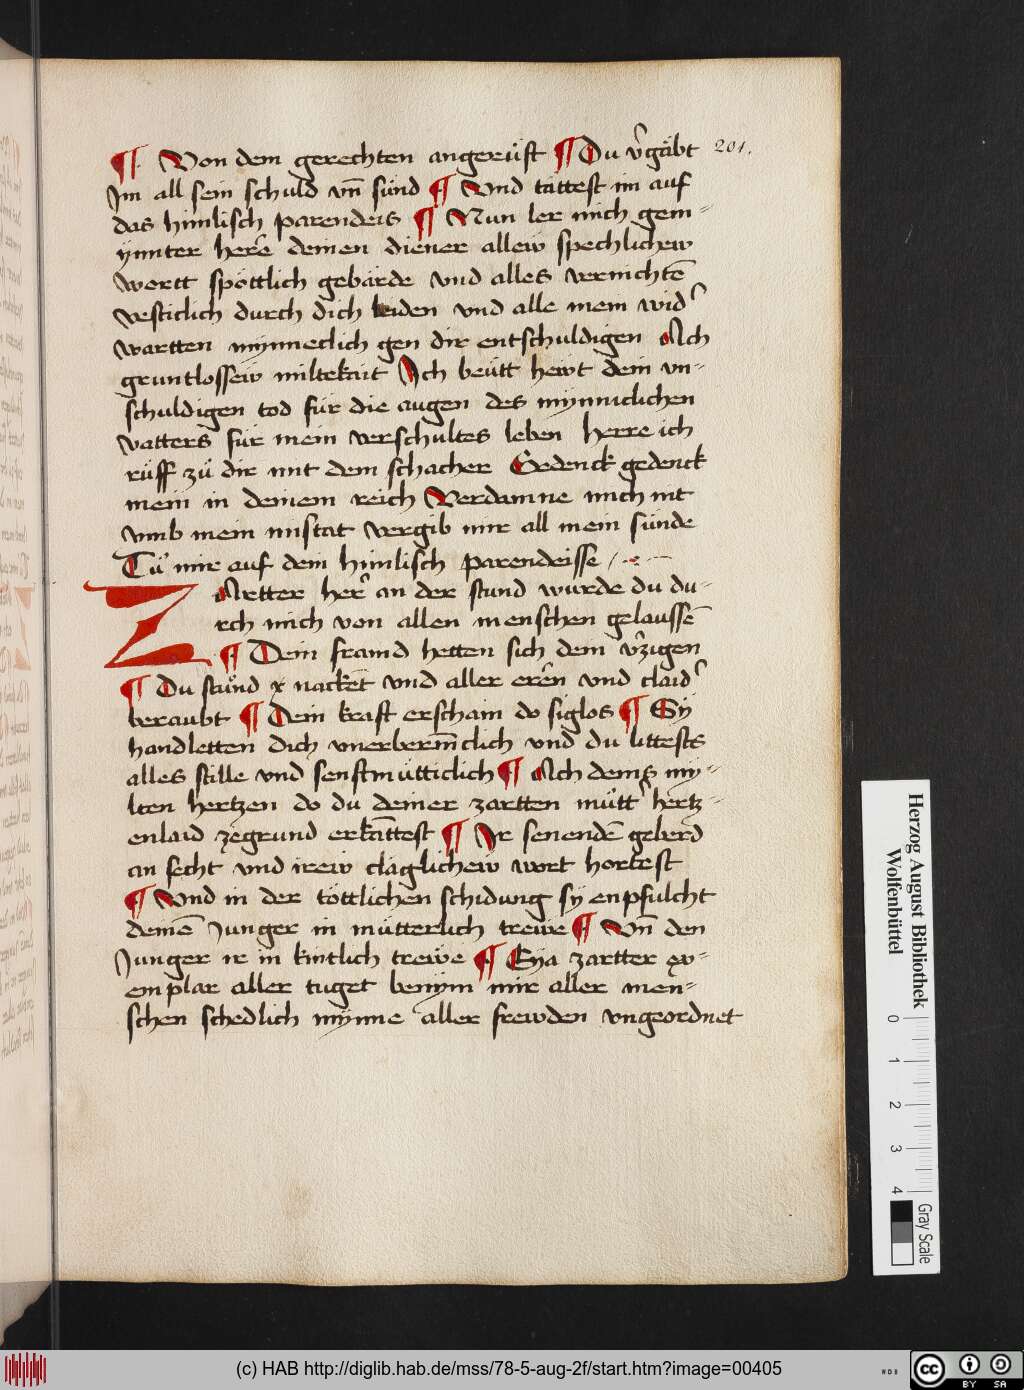 ¶ Von dem gerechten angerüfft ¶ Du v̾gäbt 201.
Im all sein schuld vn̄ sünd ¶ Vnd tättest im auf
das himlisch parendeis ¶ Nun ler mich gem=
ynnter herr̄ deinen diener allew spechlichew
wortt spöttlich gebärde vnd alles vernichtē
vesticlich durch dich leiden vnd alle mein wid̾
wartten mynneclich gen dir entschuldigen Ach
gruntlossew miltekait Ich beütt hewt dein vn=
schuldigen tod für die augen des mynniclichen
vatters für mein verschultes leben herre ich
rüff zů dir mit dem schacher Gedenck gedenck
mein in deinem reich Verdamne mich nit
vmb mein mistat vergib mir all mein sünde
Tů mir auf dein himlisch parendeisse
ZArtter her̾ an der stund wurde du du=
rch mich von allen menschen gelaussē
¶ Dein fraind hetten sich dein v̾zigen
¶ Du stůnd x nacket vnd aller erēn vnd claid̾
beraubt ¶ Dein kraft erschain do siglos ¶ Sy
handletten dich vnerberm̄clich vnd du littests
alles stille vnd senftmütticlich ¶ Ach deins my=
lten hertzen do du deiner zartten mütt̾ hertz=
enlaid zegrund erkāttest ¶ Ir senendē geberd
an secht vnd irew cläglichew wort hortest
¶ Vnd in der töttlichen schidung sy enpfulcht
deinē Iunger in mütterlich trewe ¶ Vn̄ den
Iunger ir in kintlich trewe ¶ Eya zartter ex=
emplar aller tuget benym mir aller men=
schen schedlich mynne aller frewden vngeordnet
Herzog August Bibliothek
Wolfenbüttel
0 1 2 3 4
Gray Scale
(c) HAB http://diglib.hab.de/mss/78-5-aug-2f/start.htm?image=00405
cc BY SA